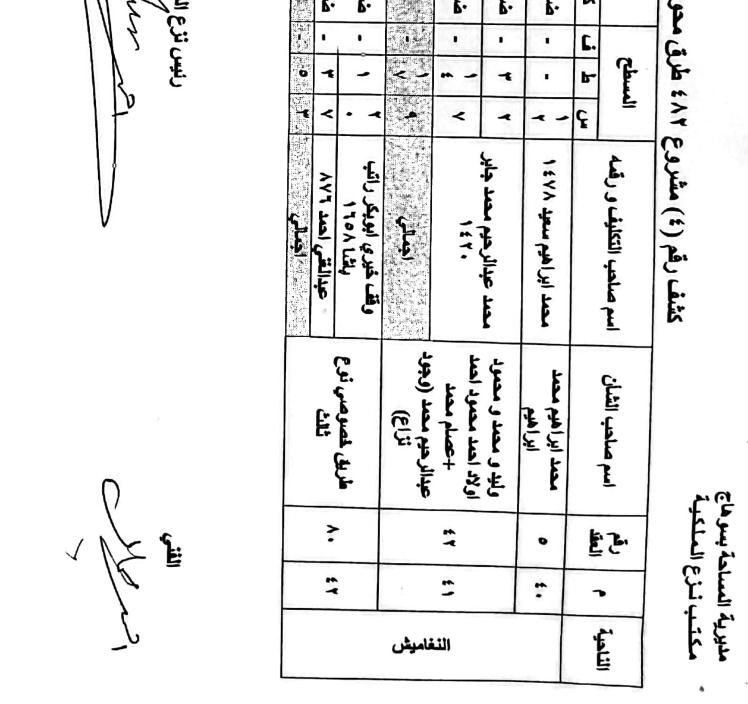 مديرية المساحة بسوهاج
مكتب نزع الملكية
كشف رقم (٤) مشروع ٤٨٢ طرق
الناحية م رقم العقد اسم صاحب الشأن اسم صاحب التكليف و رقمه المسطح
س ط ف
النغاميش
٤٠ ٥ محمد ابراهيم محمد ابراهيم محمد ابراهيم سعيد ١٤٧٨ ١٢ - -
٤١ ٤٢ وليد و محمد و محمود اولاد احمد محمود احمد +عصام محمد عبدالرحيم محمد (وجود نزاع) محمد عبدالرحيم محمد جابر ١٤٢٠ ٢ ٣ -
٧ ١٤ -
اجمالي ٩ ١٧ -
٤٢ ٨٠ طريق خصوصي نوع ثالث وقف خيري ابوبكر راتب باشا ١٦٥٨ ٢٠ ١ -
عبدالغني احمد ٨٧٦ ٧ ٣ -
اجمالي ٣ ٥ -
الفني
رئيس نزع